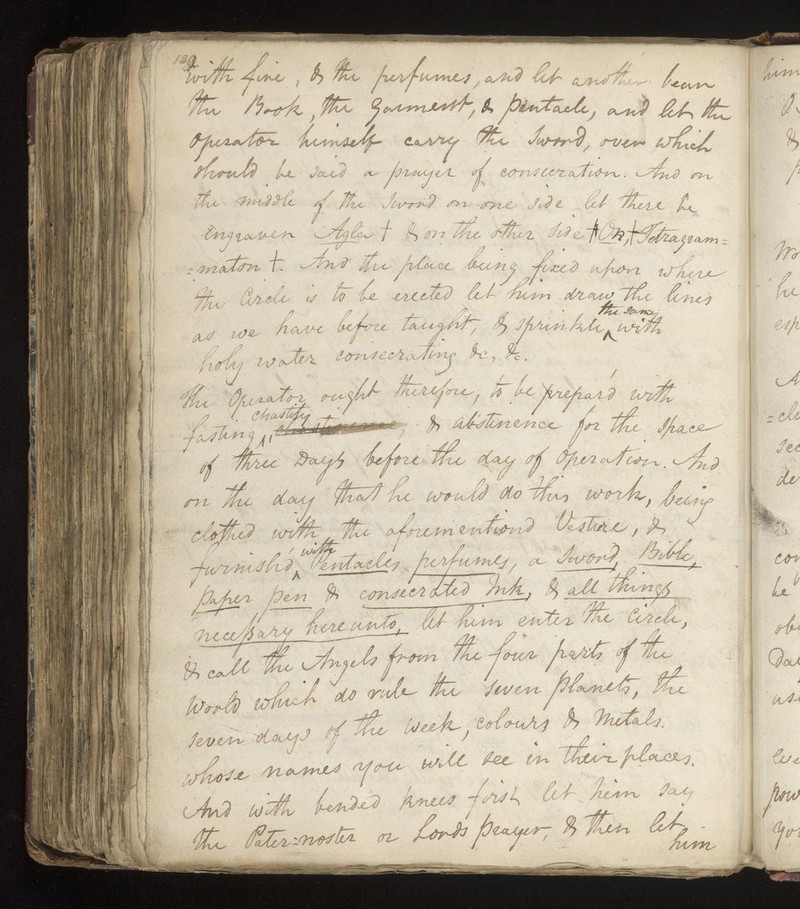 with fire, & the perfumes, and let another bear
the Book, the Garment, & Pentacle, and let the
Operator himself carry the Sword, over which
should be said a prayer of consecration. And on
the middle of the sword on one side let there be
engraven Agla † & on the other side † On, † Tetragram=
=maton †. And the place being fixed upon where
the Circle is to be erected let him draw the lines
as we have before taught, & sprinkle the same with
holy water consecrating &c, &c.
The Operator ought therefore, to be prepar'd with
fasting, chastity, & abstinence for the space
of three Days before the day of Operation. And
on the day that he would do this work, being
clothed with the aforemention'd Vesture, &
furnish'd with Pentacles, perfumes, a Sword, Bible,
paper pen & consecrated Ink, & all things
necessary hereunto, let him enter the Circle,
& call the Angels from the four parts of the
World which do rule the seven Planets, the
seven days of the Week, colours & Metals.
whose names you will see in their places.
And with bended knees first let him say
the Pater=noster or Lords Prayer, & then let
him